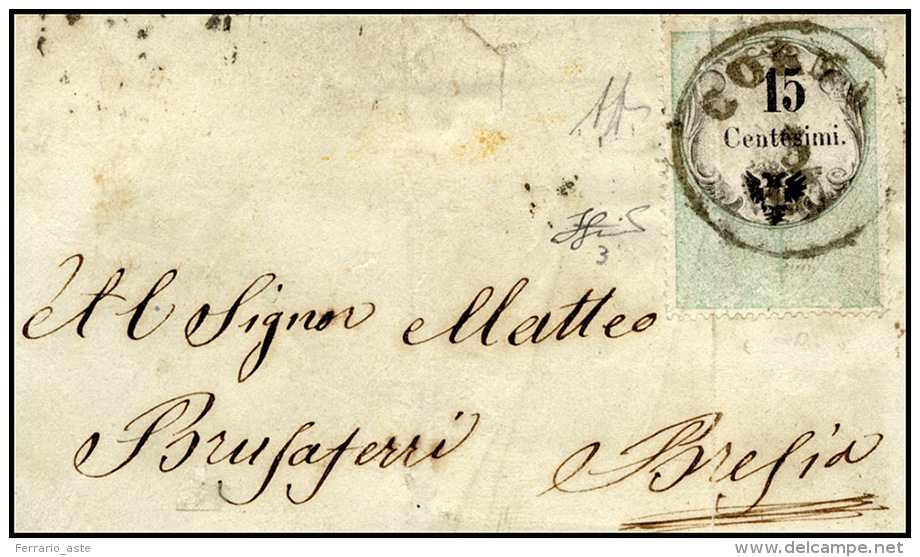 15
Centesimi.
3
Al Signor Matteo
Brusaferri Bresia
Ferrario_aste
delcampe.net